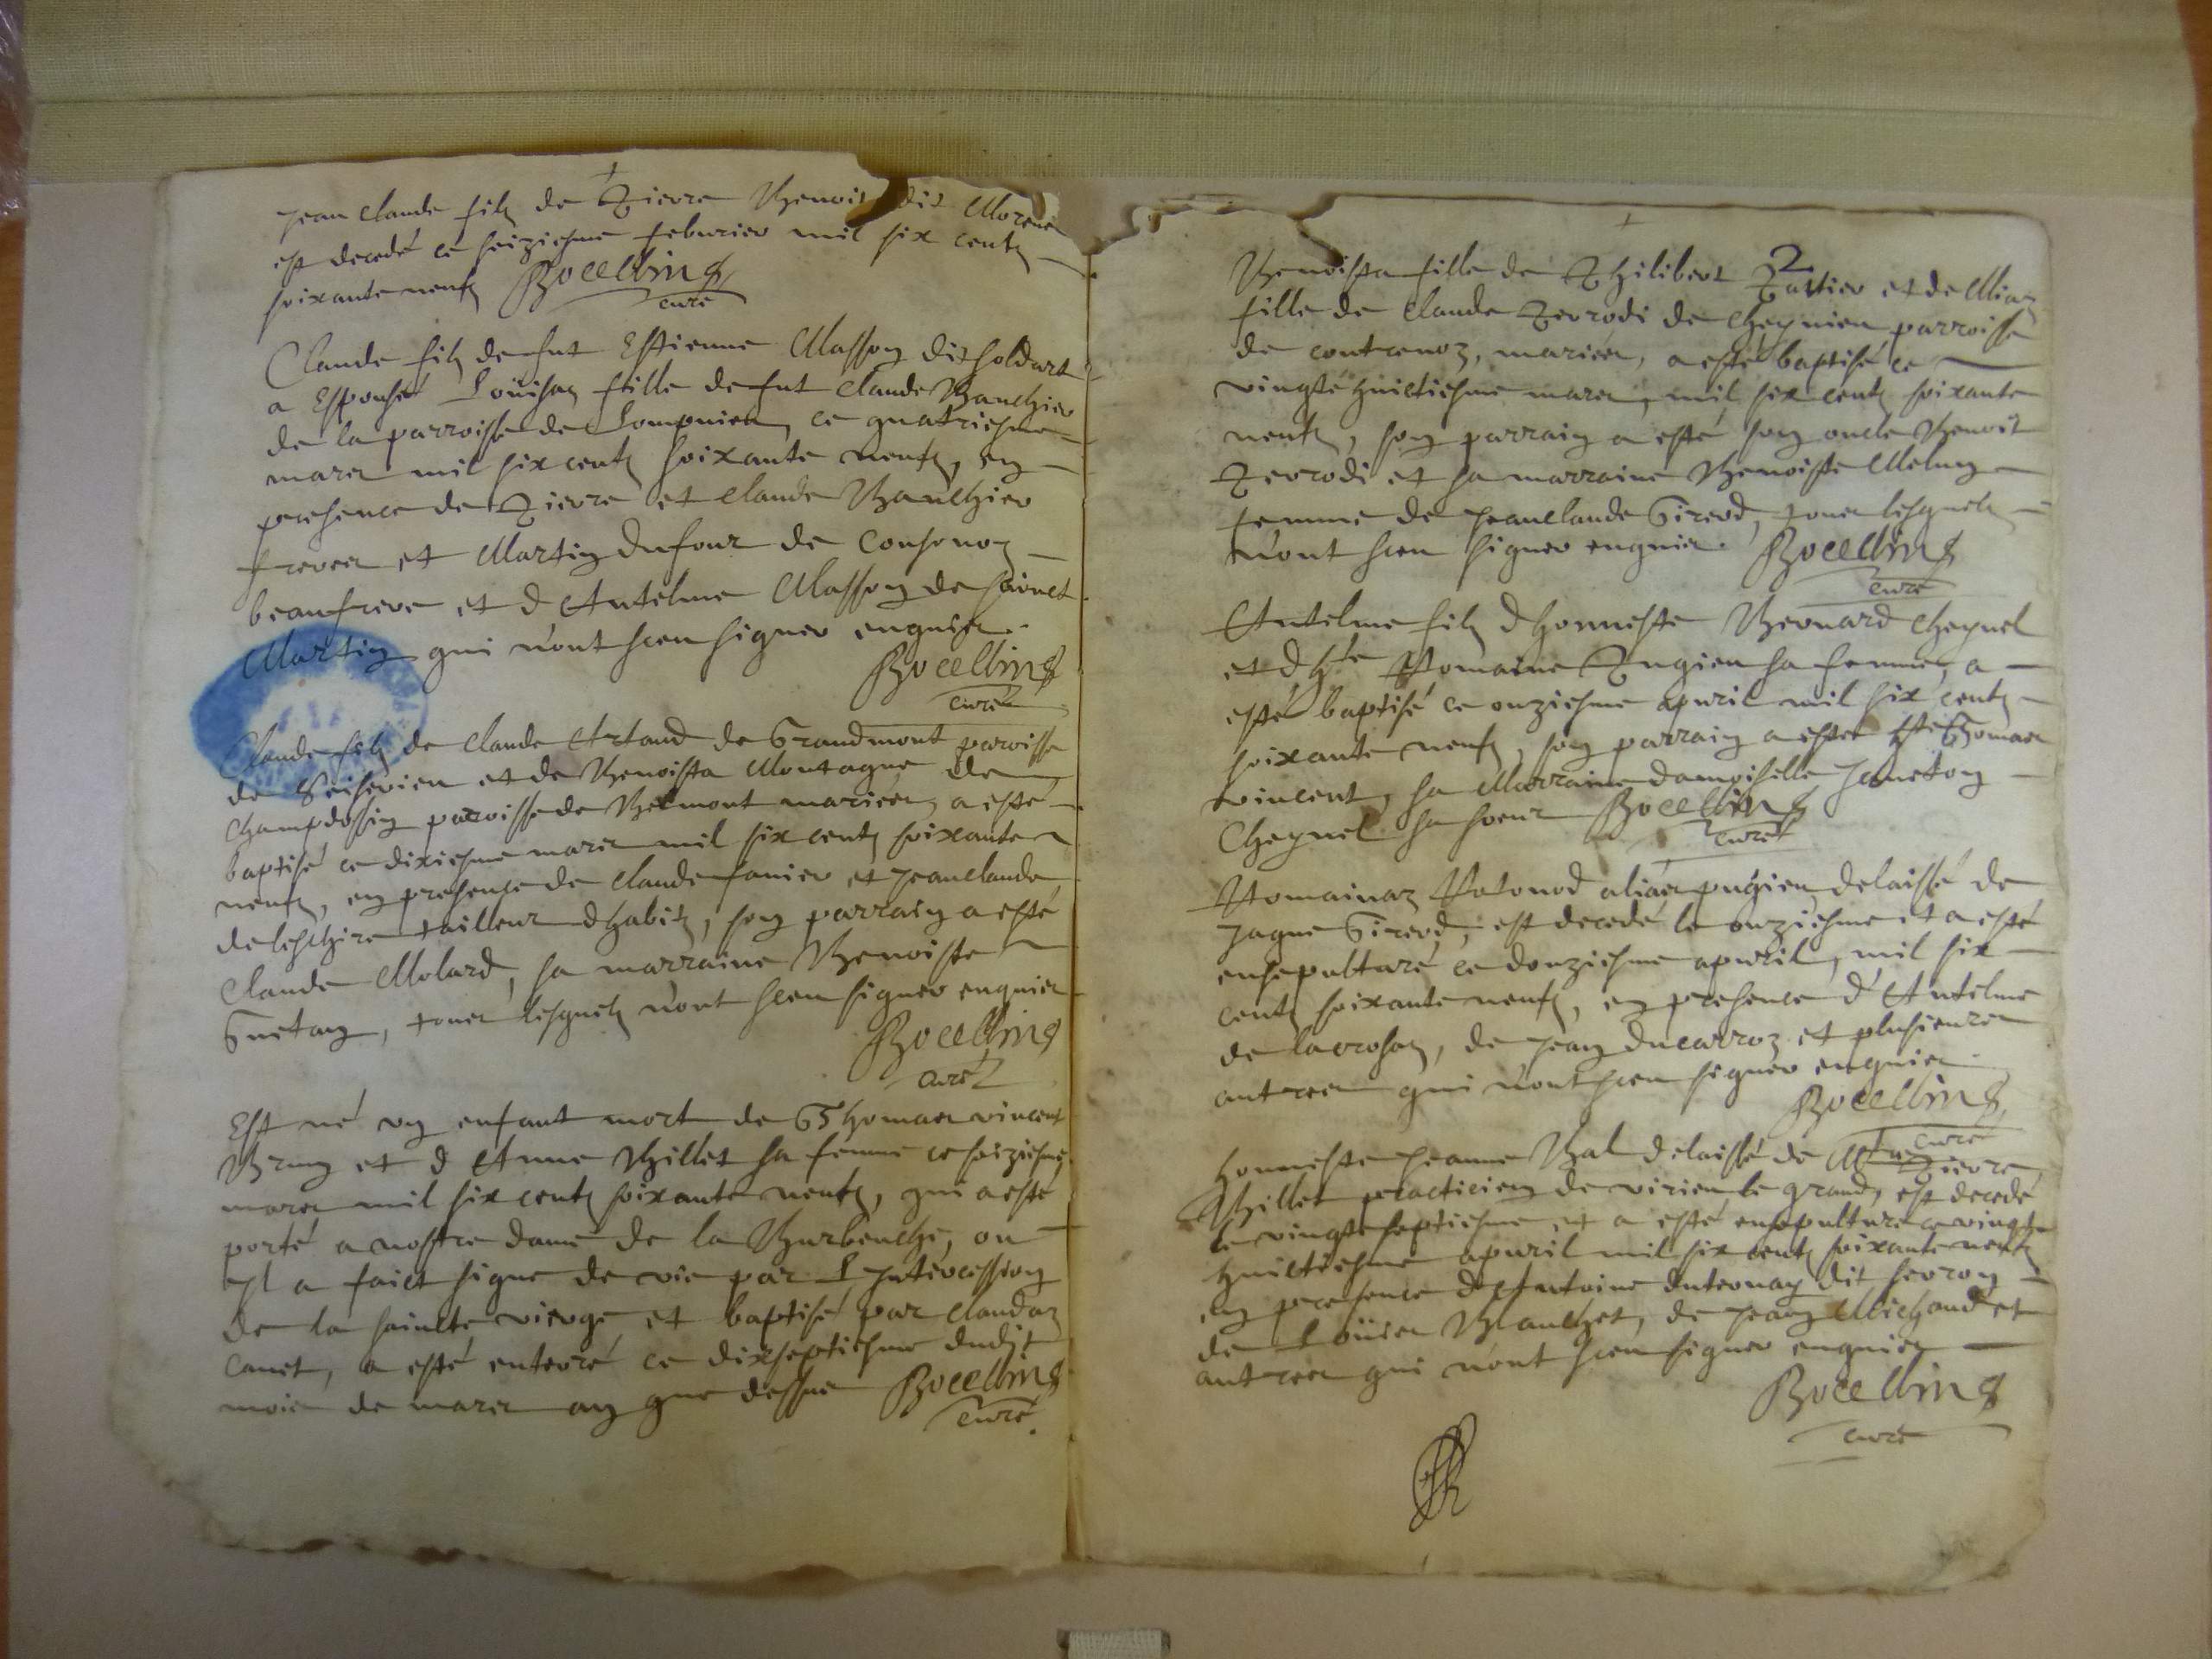 Jean Claude filz de Pierre Benoit dit Morene
est decedé ce seiziesme febvrier mil six centz
soixante neufz Bocellin
curé
Claude filz de fut Estienne Masson dit soldart
a Espousé Loüisaz fille de fut Claude Bauchier
de la parroisse de Lompnieu, ce quatriesme
mars mil six centz soixante neufz, en
presence de Pierre et Claude Bauchier
freres et Martin Dufour de Consonoz
beaufrere et d Antelme Masson de sainct
Martin qui n'ont sceu signer enquis.
Bocellin
curé
Claude filz de Claude Artaud de Grandmont paroisse
de Seiserieu et de Benoista Montagne de
Champdossin parroisse de Belmont mariés, a esté
baptisé ce dixiesme mars mil six centz soixante
neufz, en presence de Claude fanier et Jeanclaude
de tailleur dhabitz, son parrain a esté
Claude Molard, sa marraine Benoiste
Guetan, tous lesquelz n'ont sceu signer enquis
Bocellin
curé
Est né un enfant mort de Thomas vincent
Brun et d Anne Billet sa femme ce seiziesme
mars mil six centz soixante neufz, qui a esté
porté a nostre dame de la Burbenche, ou
Il a faict signe de vie par L Intercession
de la saincte vierge et baptisé par Claudaz
Canet, a esté enterré ce dixseptiesme dudit
mois de mars an que dessus Bocellin
curé.
2
Benoista fille de Philibert Partier et de Miaz
fille de Claude Perrodi de Cheynieu parroisse
de contrevoz, mariés, a esté baptisé ce
vingte huictiesme mars, mil six centz soixante
neufz, son parrain a esté son oncle Benoit
Perrodi et sa marraine Benoiste Melun
femme de Jeanclaude Girerd, tous lesquelz
n'ont sceu signer enquis. Bocellin
curé
Antelme filz d honneste Bernard Cheynel
et d h.te Romaine Pugieu sa femme, a
esté baptisé ce onziesme apvril mil six centz
soixante neufz, son parrain a esté Thomas
vincent, sa Marraine damoiselle Janeton
Cheynel sa soeur Bocellin
curé
Romainaz Rotonod aliàs pugieu delaissé de
Jaque Girerd, est decedé le onziesme et a esté
ensepulturé ce douziesme apvril, mil six
centz soixante neufz, en presence d' Antelme
de lacrosaz, de Jean ducarroz et plusieurs
autres qui n'ont sceu signer enquis.
Bocellin
curé
honneste Jeanne Bal delaissé de Pierre
Billet practicien de virieu le grand, est decedé
le vingte septiesme, et a esté ensepulturé ce vingte
huictiesme apvril mil six centz soixante neufz
en presence d'Antoine duternay dit serron
de Loüis Blanchet, de Jean Michaud et
autres qui n'ont sceu signer enquis
Bocellin
curé